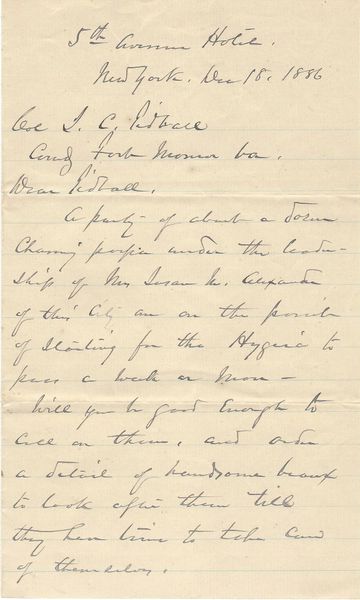 5th Avenue Hotel.
New York. Dec 18, 1886
Col J. C. Tidball
Comdg Fort Monroe Va.
Dear Tidball,
A party of about a dozen
Charming people under the leader-
ship of Mrs Susan M. Alexander
of this City are on the point
of Starting for the Hygeia to
pass a week or more –
Will you be good Enough to
call on them, and order
a detail of handsome beaux
to look after them till
they have time to take care
of themselves.